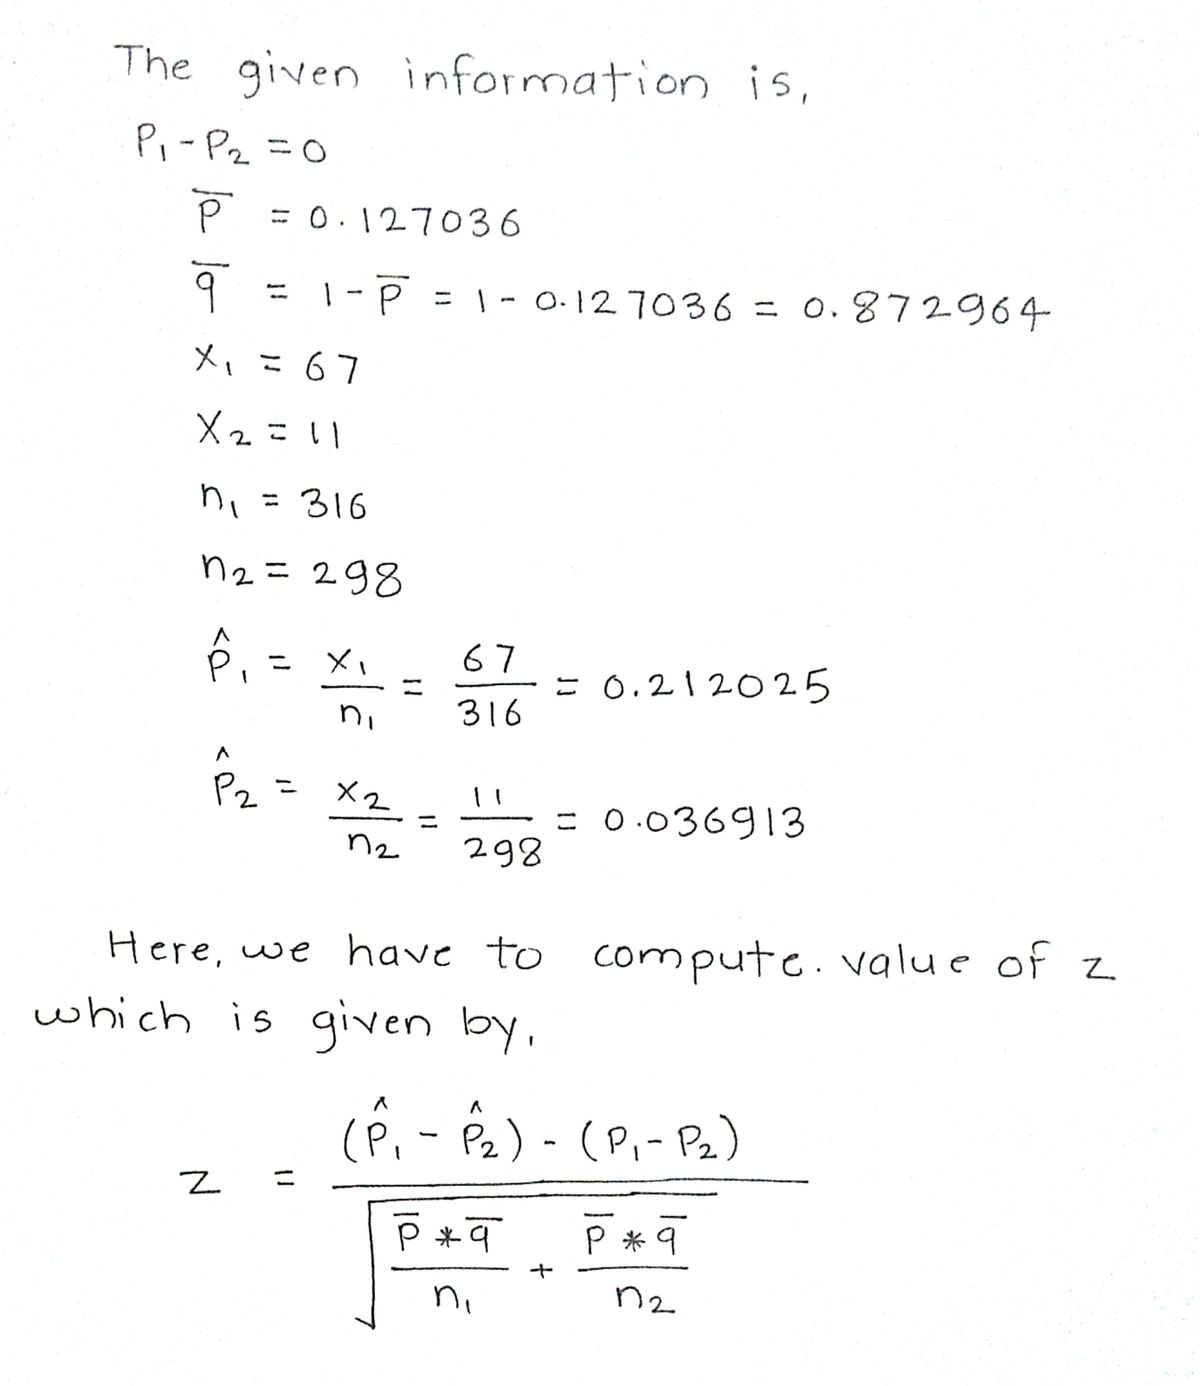 The given information is,
P₁ - P₂ = 0
p̅ = 0.127036
q̅ = 1 - p̅ = 1 - 0.127036 = 0.872964
x₁ = 67
X₂ = 11
n₁ = 316
n₂ = 298
p̂₁ = x₁/n₁ = 67/316 = 0.212025
p̂₂ = x₂/n₂ = 11/298 = 0.036913
Here, we have to compute. value of z
which is given by,
z = ((p̂₁ - p̂₂) - (P₁ - P₂)) / √(p̅ * q̅/n₁ + p̅ * q̅/n₂)